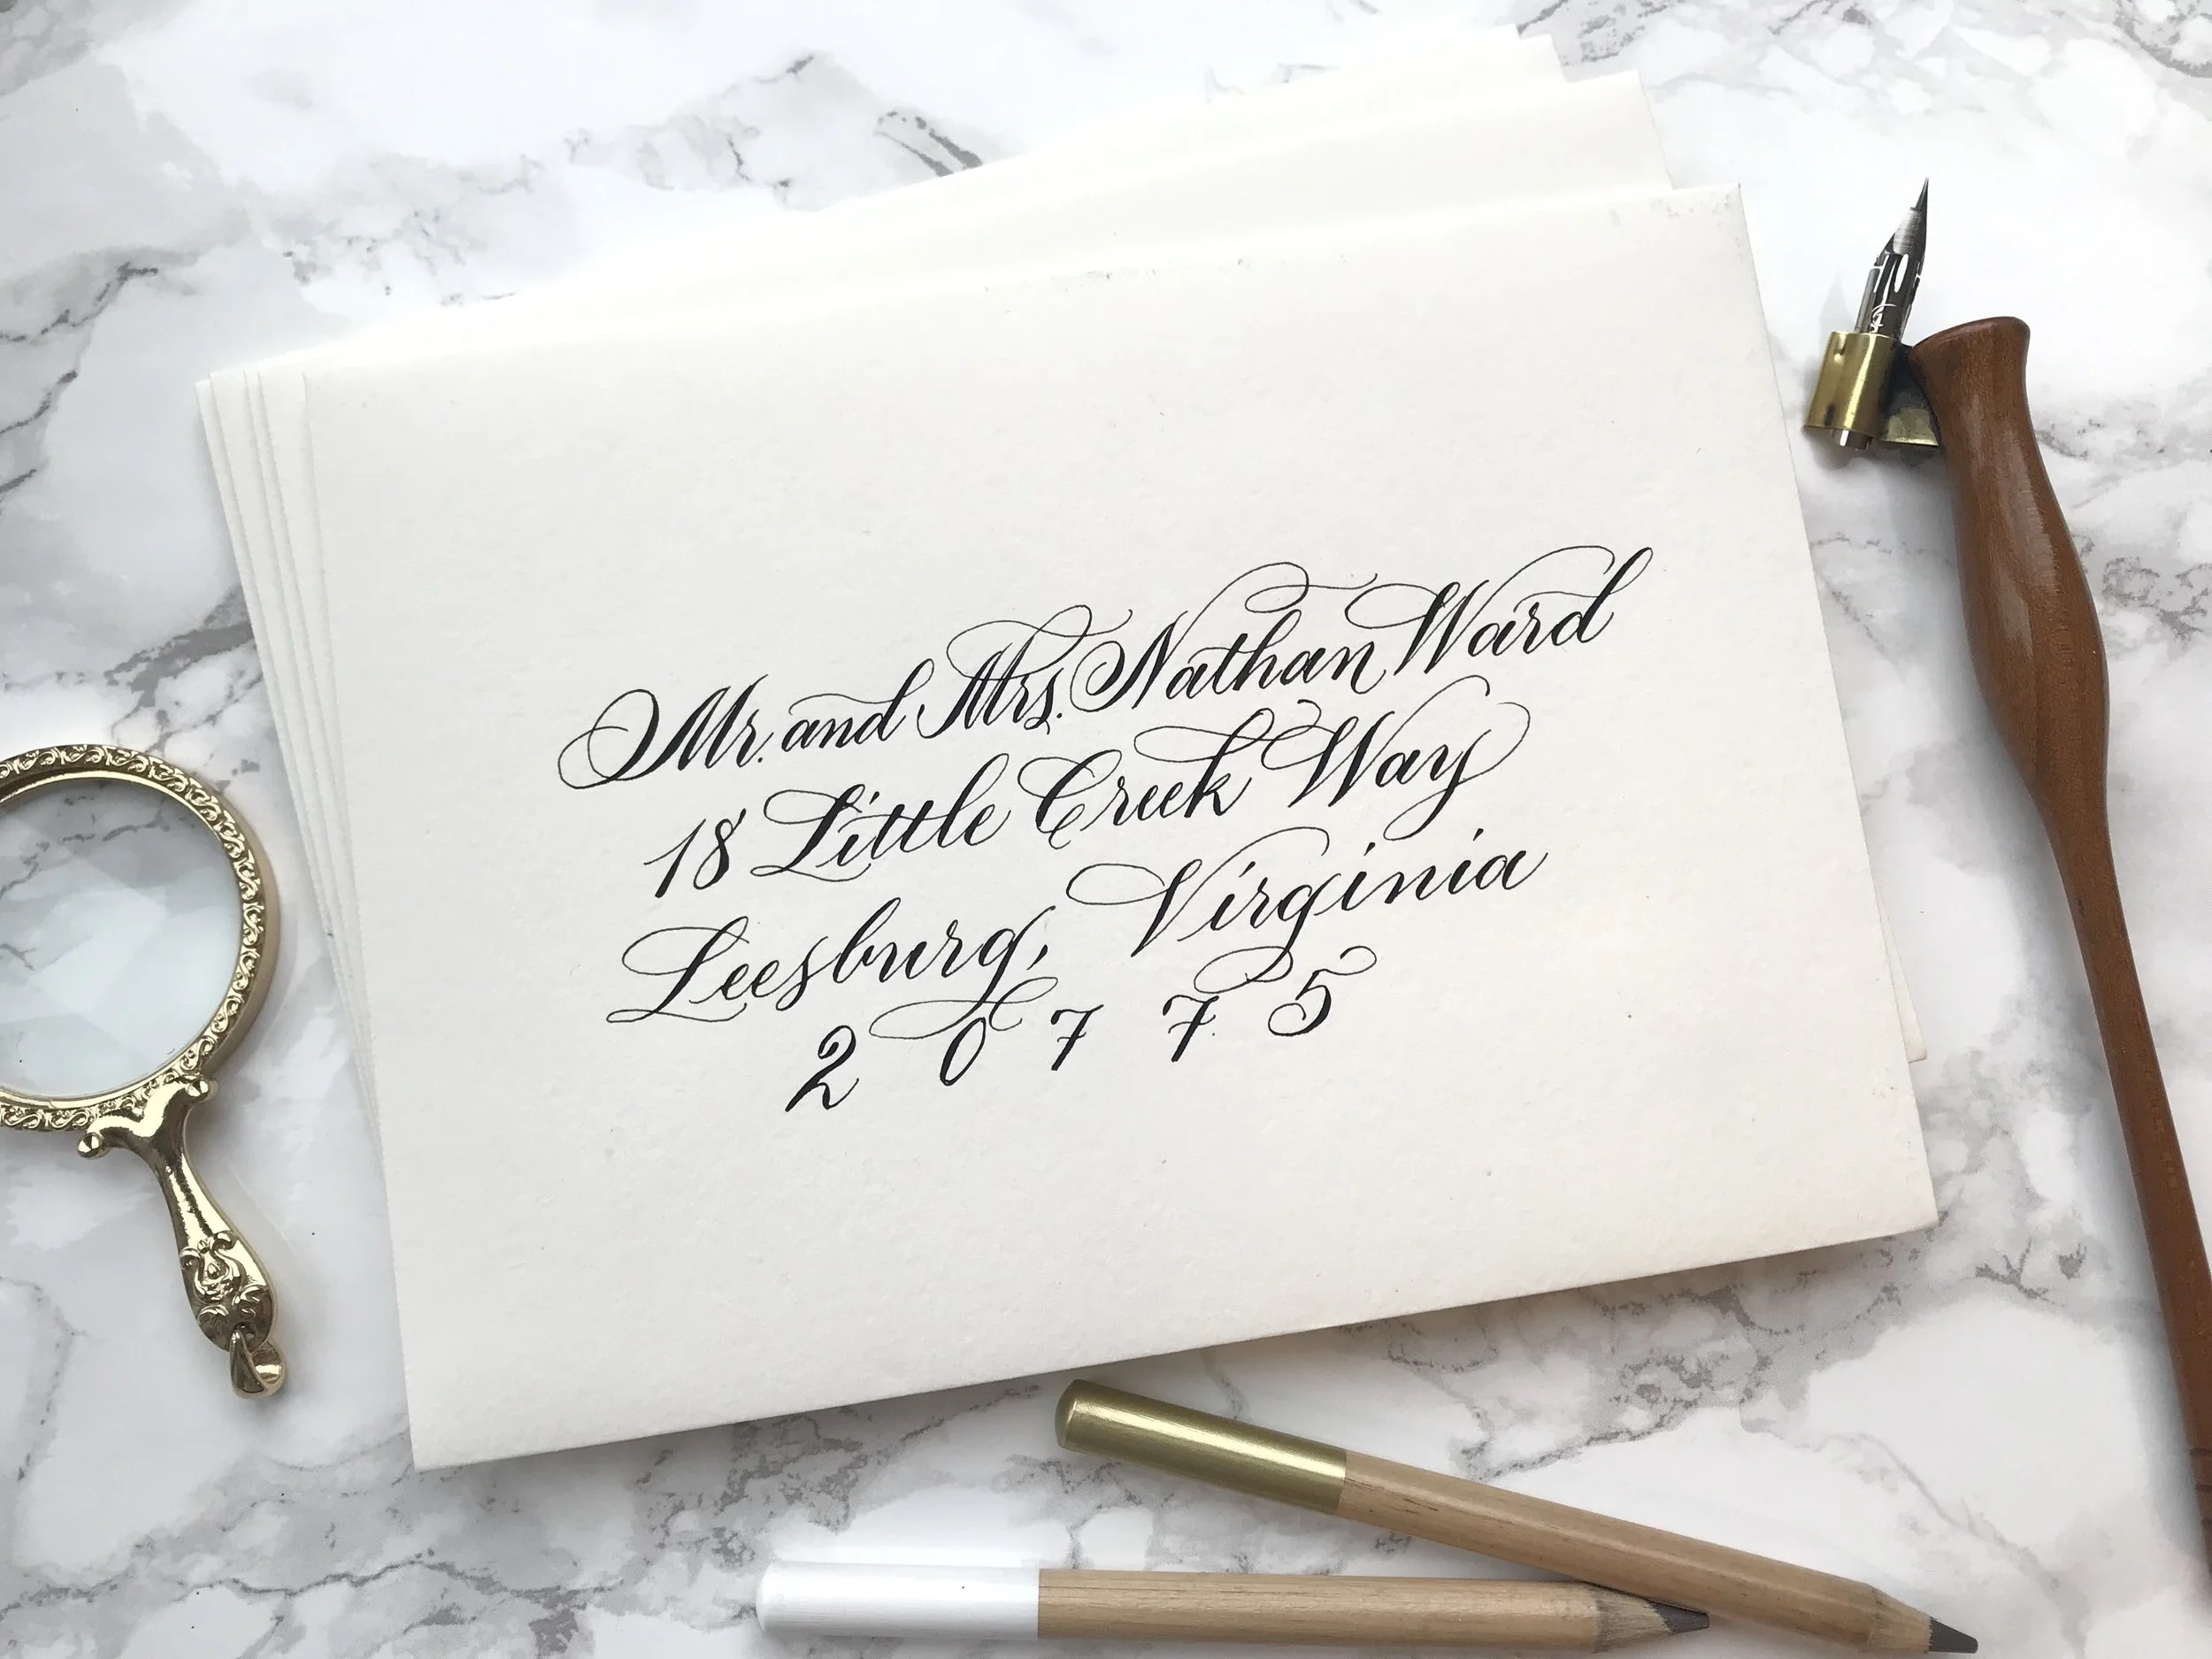 Mr. and Mrs. Nathan Ward
18 Little Creek Way
Leesburg, Virginia
20775